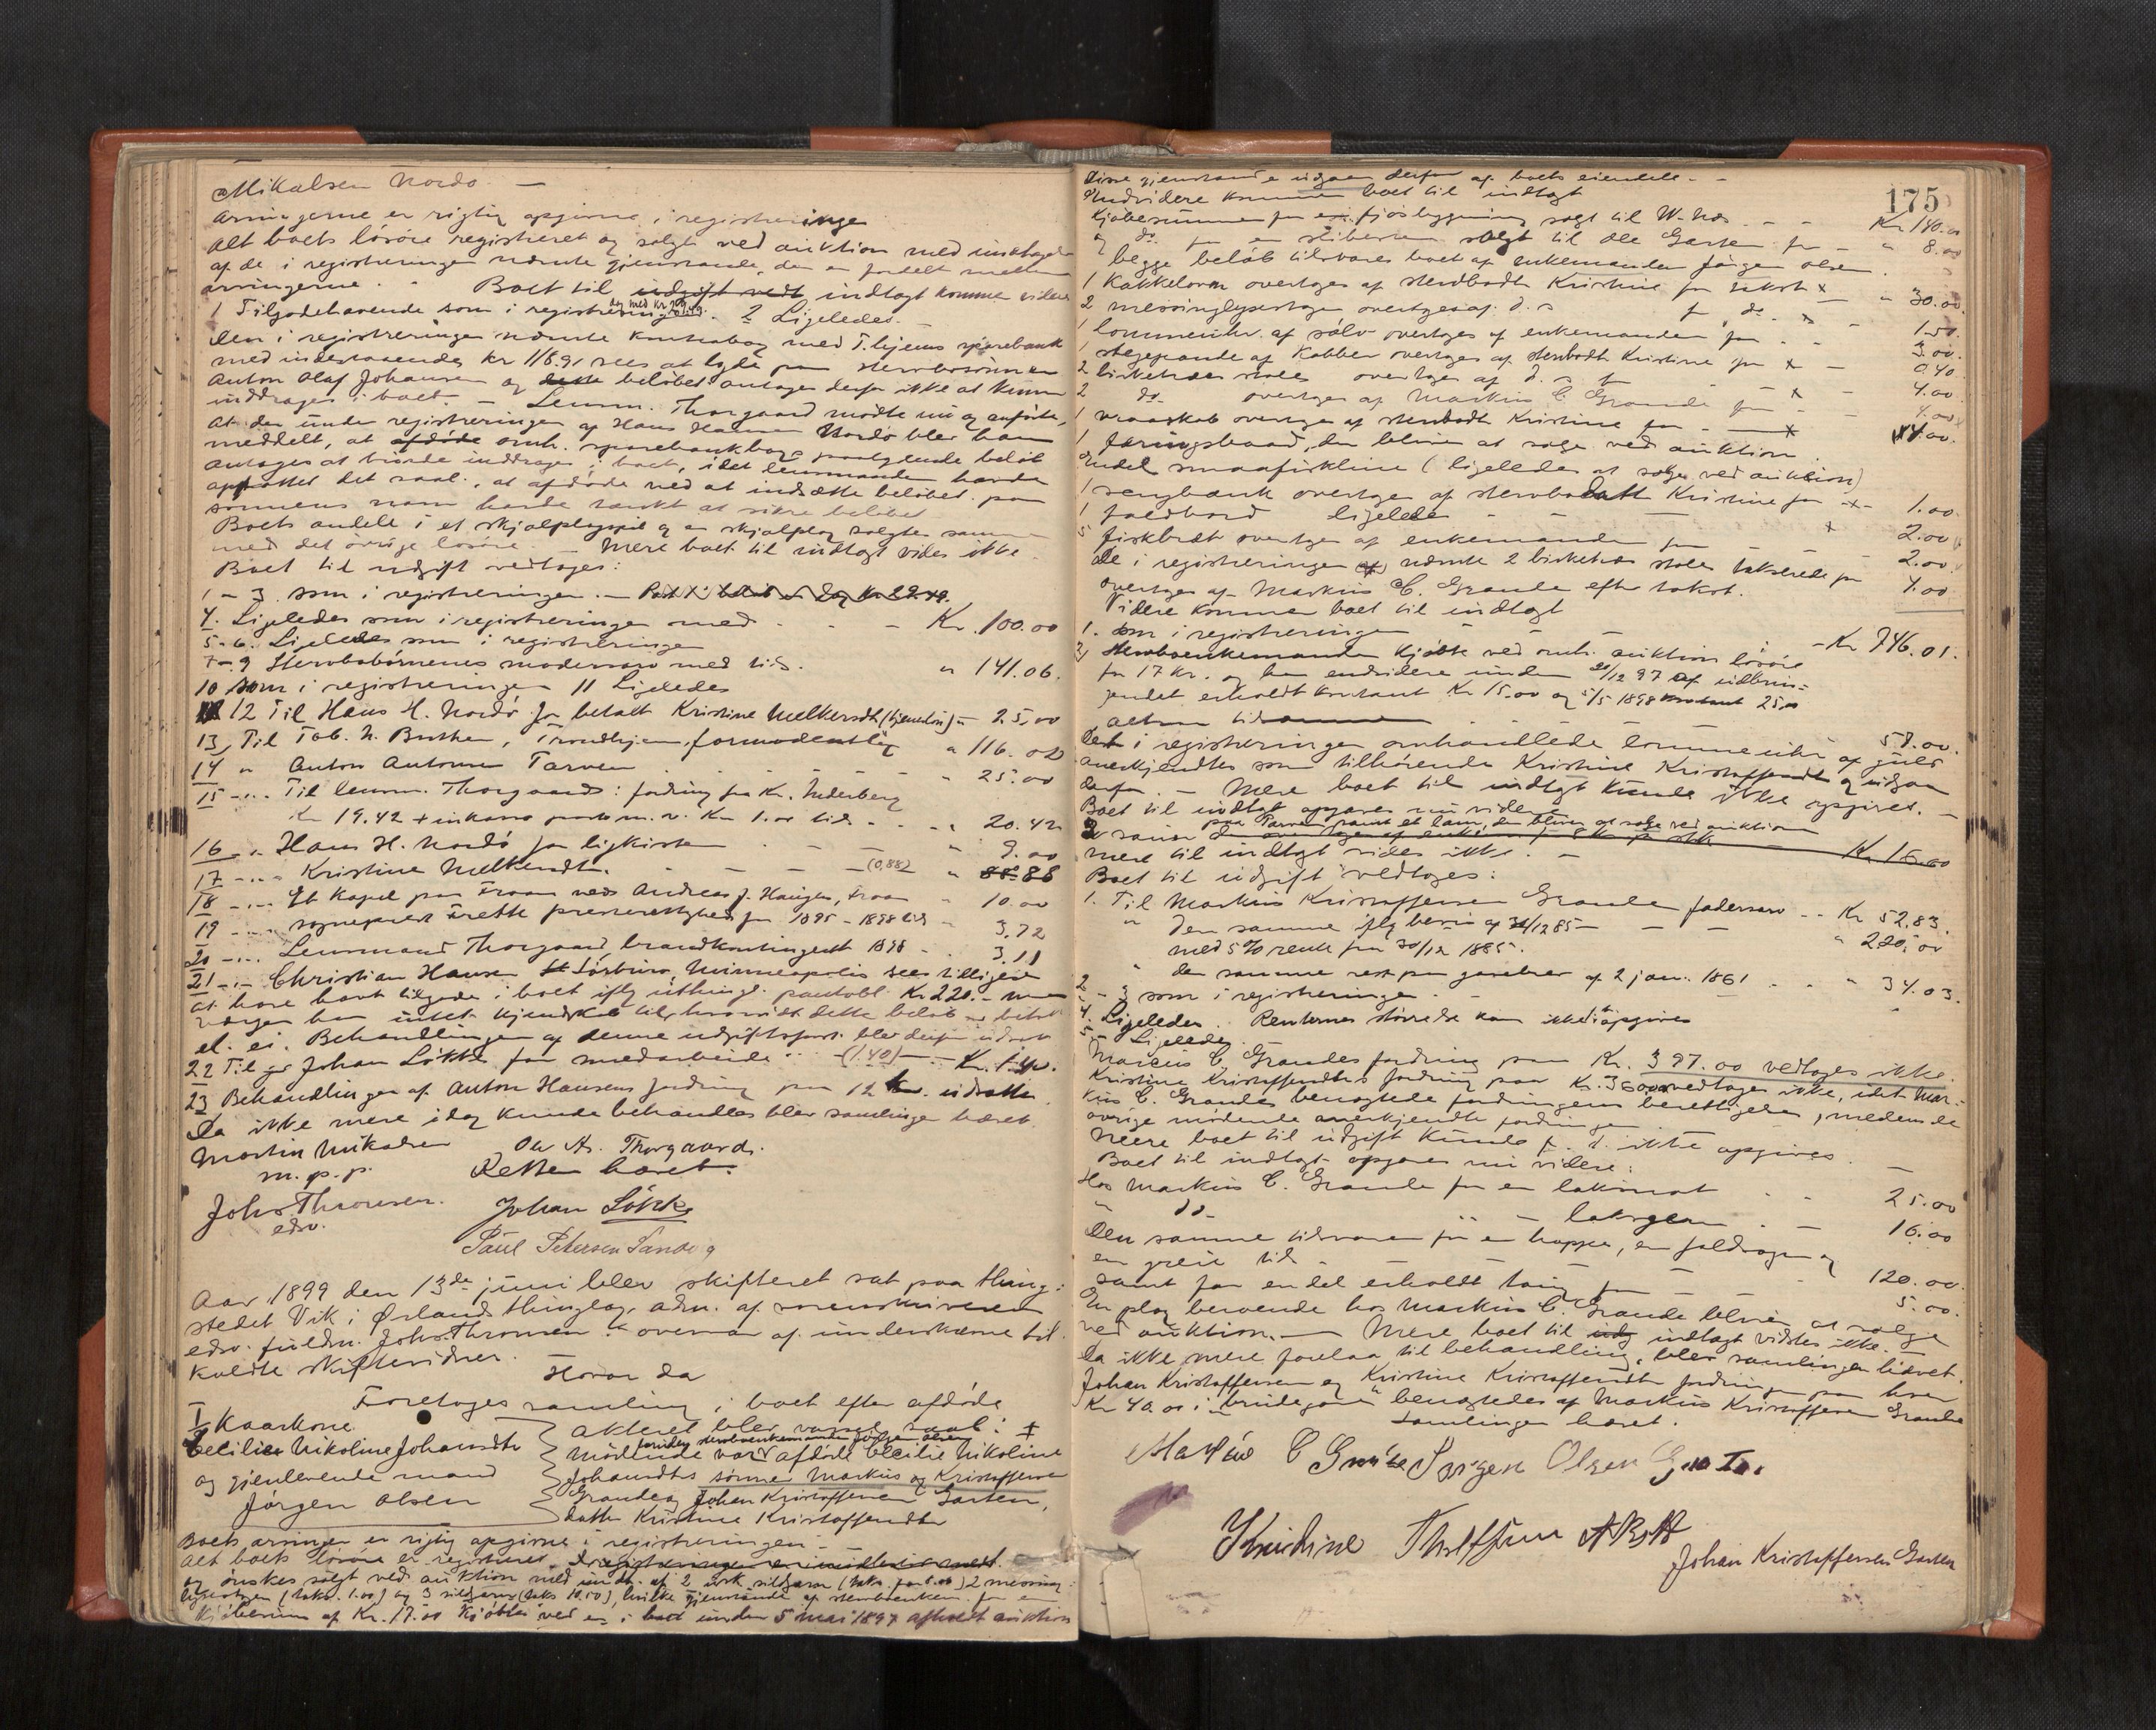 Mikalsen Nordo —
Arvingerne er rigtig opgivne i registreringen
Alt boets lösöre registreret og solgt ved auktion med undtagelse
af de i registreringen nævnte gjenstande, der er fordelt mellem
arvingerne. - Boet til udgift vedt indtægt kommer videre
1 Tilgodehavende som i registreringen dog med Kr. 2 Ligeledes.
Den i registreringen nævnte kontrabog med T.hjems sparebank
med indestaaende Kr 118.91 sees at lyde paa stervbosönnen
Anton Olaf Johansen og dette belöbet antages derfor ikke at kunne
inddrages i boet. - Lensm. Thorgaard mödte nu og anförte,
at den under registreringen af Hans Hansen Nordö blev ham
meddelt, at afdöde omh. sparebankbog paalydende belöb
antages at burde inddrages i boet, idet lensmanden havde
opfattet det saal., at afdöde ved at indsætte belöbet paa
sönnens navn havde tænkt at sikre belöbet
Boets andele i et skjælplogspil og en skjælplog solgtes sammen
med det övrige lösöre. - Mere boet til indtægt vides ikke
Boet til udgift vedtages:
1 - 3 som i registreringen. —
4. Ligeledes som i registreringen med - - - Kr. 100.00
5-6. Ligeledes som i registreringen
7-9 Stervbobörnenes modersarv med tils. " 141.06.
10 som i registreringen 11 Ligeledes
12 Til Hans H. Nordö for betalt Kristine Melkersdt (tjenestelön) - 25,00
13, Til Tob. H. Buthen, Trondhjem, formodentlig " 116.02
14 " Anton Antonsen Tarven - - - - " 25.00
15 -"- Til lensm. Thorgaard: fordring fra Kr. Uderberg
Kr 19.42 + inkasso porto m. v. Kr 1.00 tils - - - 20.42
16 -"- Hans H. Nordö for ligkisten - - - " 9.00
17 -"- Kristine Melkersdt. - - - - (0,88) " 88.88
18 -"- Et Kapel paa Froan ved Andreas J. Hauges, Froan " 10.00
19 -"- sogneprest Frette presterettighed for 1895 - 1898 tils " 3.72
20 -"- Lensmand Thorgaard, brandkontingent 1898 - " 3.11
21 -"- Christian Hansen Störbuin, Minneapolis sees tilligere
at have havt tilgode i boet iflg uthingl. pantobl. Kr 220.- men
nogen har intet kjendskab til, hvorvidt dette belöb er betalt
el. ei. Behandlingen af denne udgiftspost blev derfor udsat
22 Til Johan Lökke for medarbeide - - (1.40) - - Kr. 1.40.
23 Behandlingen af Anton Hansens fordring paa 12 kr. udsattes.
Da ikke mere idag kunde behandles blev samlingen hævet
Martin Mikalsen Ole A. Thorgaard.
m. p. p. Retten hævet.
Johs Thronsen. Johan Lökke
edsv. Paul Petersen Sandvig
Aar 1899 den 13de juni blev skifteret sat paa thing-
stedet Vik i Ørlands thinglag, adm. af sorenskriveren
edsv. fuldm. Johs. Thronsen i overvær af underskrevne til-
kaldte skiftevidner.
Hvor da
Foretoges samling i boet efter afdöde
I Kaarkone
Cecilie Nikoline Johansdtr
og gjenlevende mand
Jörgen Olsen
akteret blev saal:
foruden stervboenkemanden Jörgen Olsen
Mödende var afdöde Cecilie Nikoline
Johansdtrs sönner Markus og Kristoffersen
Grande og Johan Kristoffersen Garten,
datter Kristine Kristoffersdtr
Boets arvinger er rigtig opgivne i registreringen. -
Alt boets lösöre er registreret.
og önskes solgt ved auktion med undt. af 2 sildgarn (takst fra 8.00) 2 messing-
lysestager (takst. 1.00) og 3 sildgarn (takst 10.00), hvilke gjenstande af stervboenkem. for en
Kjöbesum af Kr. 17.00 kjöbtes ved en i boet under 5 mai 1897 afholdt auktion
175
Disse gjenstande udgaar derfor af boets eiendele. -
Endvidere kommer boet til indtægt
Kjöbesummen for en fjösbygning solgt til W. Næs - - Kr 140.00
og do for en slibesten solgt til Ole Garten for - " 8.00
begge belöb tilsvares boet af enkemanden Jörgen Olsen.
1 Kakkelovn overtoges af stervbodt Kristine for takst x - " 30.00
2 messinglysestager overtoges af d. s f. do. x - 1.50.
1 lommeuhr af sölv overtoges af enkemanden for - - 3.00.
1 stegepande af Kobber overtoges af stervbodt Kristine for x - 0.40
2 birketræs stoler overtoges af d. s f. - x - 4.00
2 do. overtoges af Markus C. Grande for - - 4.00
1 vraaskab overtoges af stervbodt Kristine for - x 14.00.
1 Færingsbaad, den bliver at sælge ved auktion
Endel smaafiskline (ligeledes at sælge ved auktion)
1 sengbænk overtoges af stervbodatt Kristine for x 1.00
1 foldbord ligeledes - - - 2.00
5 fiskbrett overtoges af enkemanden for x 2.00
De i registreringen nævnte 2 birketræs stoler takserede for
overtoges af Markus C. Grande efter takst. 4.00
Videre kommer boet til indtægt
1. som i registreringen - - - Kr 746.01.
2, Stervboenkemanden kjöbte ved omh. auktion lösöre
for 17 Kr. og har endvidere under 21/12 97 af udbrin-
gendet erholdt kontant Kr 15.00 og 5/5 1898 kontant 25,00
altsaa tilsammen 57.00.
Det i registreringen omhandlede lommeuhr af guld
anerkjendtes som tilhörende Kristine Kristoffersdt og udgaar
derfor. - Mere boet til indtægt kunde ikke opgives. -
Boet til indtægt opgaves nu videre
paa Tarven samt et lam, der bliver at sælge ved auktion
2 sauer Kr 16.00
mere til indtægt vides ikke. -
Boet til udgift vedtoges:
1. Til Markus Kristoffersen Grande fadersarv - - Kr 52,83.
" Den samme iflg bevis af 31/12 85 - - - " 220,00
med 5 % rente fra 30/12 1885.
" den samme rest paa gavebrev af 2 jan. 1861 - - " 34.03.
2 - 3 som i registreringen. -
4. Ligeledes. Renternes störrelse kan ikke opgives
5 - Ligeledes.
Marcus C. Grandes fordring paa Kr. 397.00 vedtoges ikke.
Kristine Kristoffersdts fordring paa Kr. 3600.00 vedtoges ikke, idet Mar-
kus C. Grande benegtede fordringens berettigelse, medens de
övrige mödende anerkjendte fordringen
Mere boet til udgift kunde f. t. ikke opgives. -
Boet til indtægt opgaves nu videre:
Hos Markus C. Grande for en laksnot - - 25.00
" do - laksgarn - - 16.00
Den samme tilsvarer for en hoppe, en foldvogn og
en greie tils - - - 120.00.
Samt for en del erholdt taug for - - 5.00.
En plog beroende hos Markus C. Grande bliver at sælge
ved auktion. - Mere boet til udg indtægt vidstes ikke. -
Da ikke mere forelaa til behandling, blev samlingen hævet.
Johan Kristoffersen og Kristine Kristoffersdts fordringer paa hver
Kr 40.00 i "brudegave" benegtedes af Markus Kristoffersen Grande
Samlingen hævet.
Markus C Grande Jørgen Olsen Garten
Kristine
Johan Kristoffersen Garten